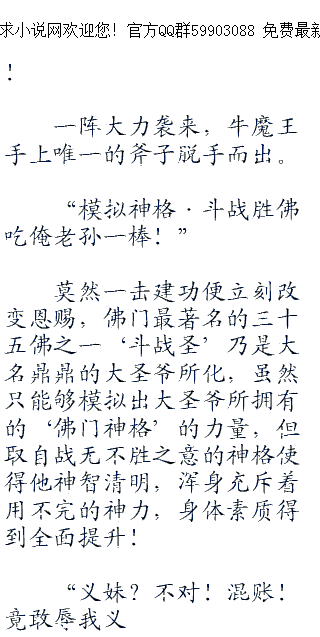 求小说网欢迎您！官方QQ群59903088 免费最新
！
一阵大力袭来，牛魔王
手上唯一的斧子脱手而出。
“模拟神格·斗战胜佛
吃俺老孙一棒！”
莫然一击建功便立刻改
变恩赐，佛门最著名的三十
五佛之一‘斗战圣’乃是大
名鼎鼎的大圣爷所化，虽然
只能够模拟出大圣爷所拥有
的‘佛门神格’的力量，但
取自战无不胜之意的神格使
得他神智清明，浑身充斥着
用不完的神力，身体素质得
到全面提升！
“义妹？不对！混账！
竟敢辱我义